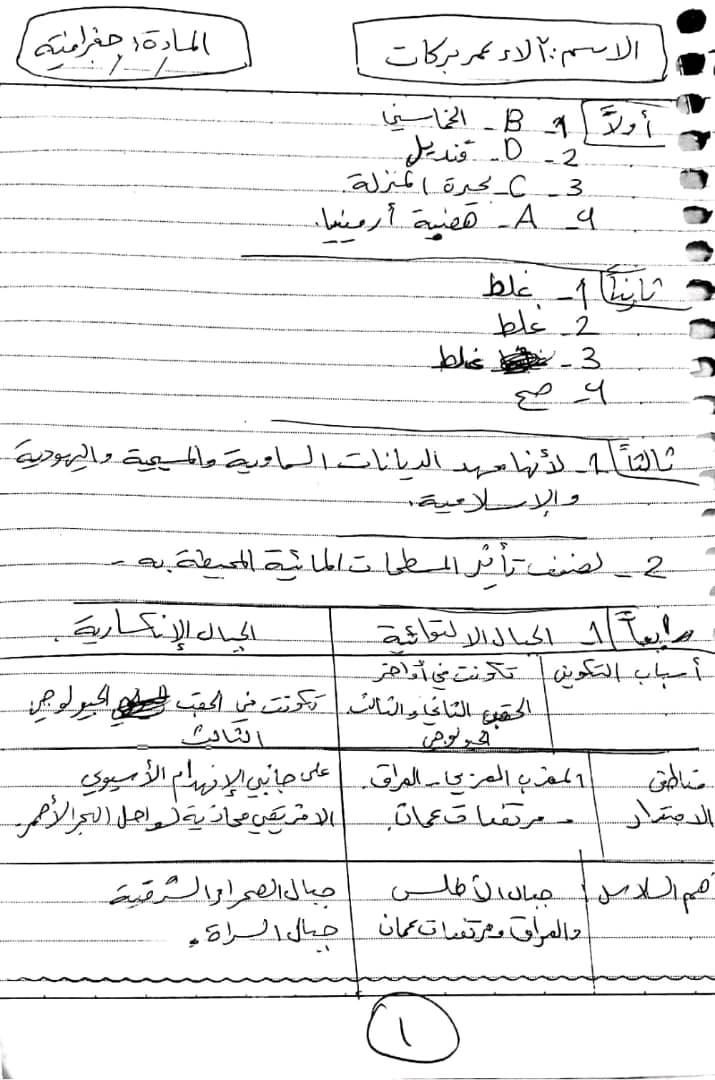 الاسم: آلاء عمر بركات
المادة: جغرافية
أولاً 1- B - الخماسين
2- D - قنديل
3- C - بحيرة المنزلة.
4- A - هضبة أرمينيا.
ثانياً 1- غلط
2- غلط
3- غلط
4- صح
ثالثاً 1- لأنها مهد الديانات السماوية والمسيحية واليهودية
والإسلامية.
2- لضعف تأثير المسطحات المائية المحيطة به -
رابعاً 1- الجبال الالتوائية الجبال الإنكسارية.
أسباب التكوين تكونت في أواخر
الحقب الثاني والثالث تكونت في الحقب الجيولوجي
الجيولوجي الثالث
مناطق المغرب العربي - العراق. على جانبي الإنهدام الآسيوي
الامتداد - مرتفعات عمان. الافريقي محاذية لسواحل البحر الأحمر.
أهم السلاسل جبال الأطلس جبال الصحراء الشرقية
والعراق ومرتفعات عمان جبال السراة.
1